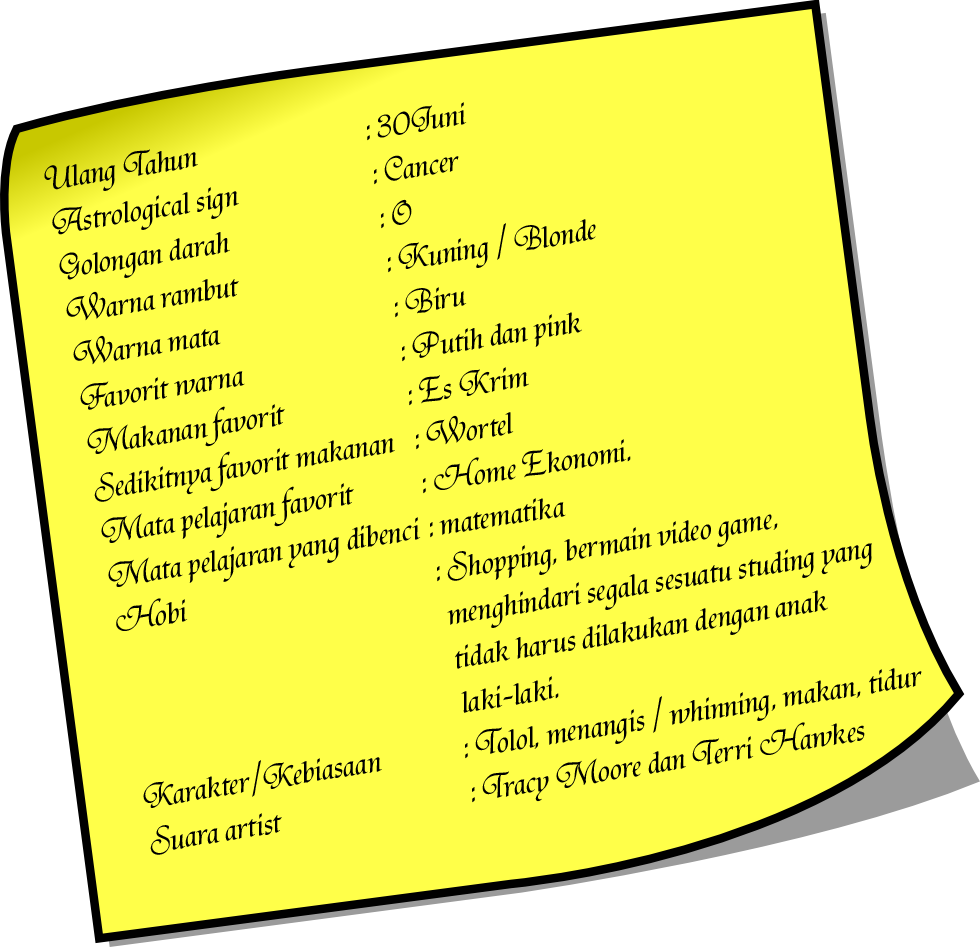 Ulang Tahun : 30Juni
Astrological sign : Cancer
Golongan darah : O
Warna rambut : Kuning / Blonde
Warna mata : Biru
Favorit warna : Putih dan pink
Makanan favorit : Es Krim
Sedikitnya favorit makanan : Wortel
Mata pelajaran favorit : Home Ekonomi.
Mata pelajaran yang dibenci : matematika
Hobi : Shopping, bermain video game,
menghindari segala sesuatu studing yang
tidak harus dilakukan dengan anak
laki-laki.
Karakter/Kebiasaan : Tolol, menangis / whinning, makan, tidur
Suara artist : Tracy Moore dan Terri Hawkes